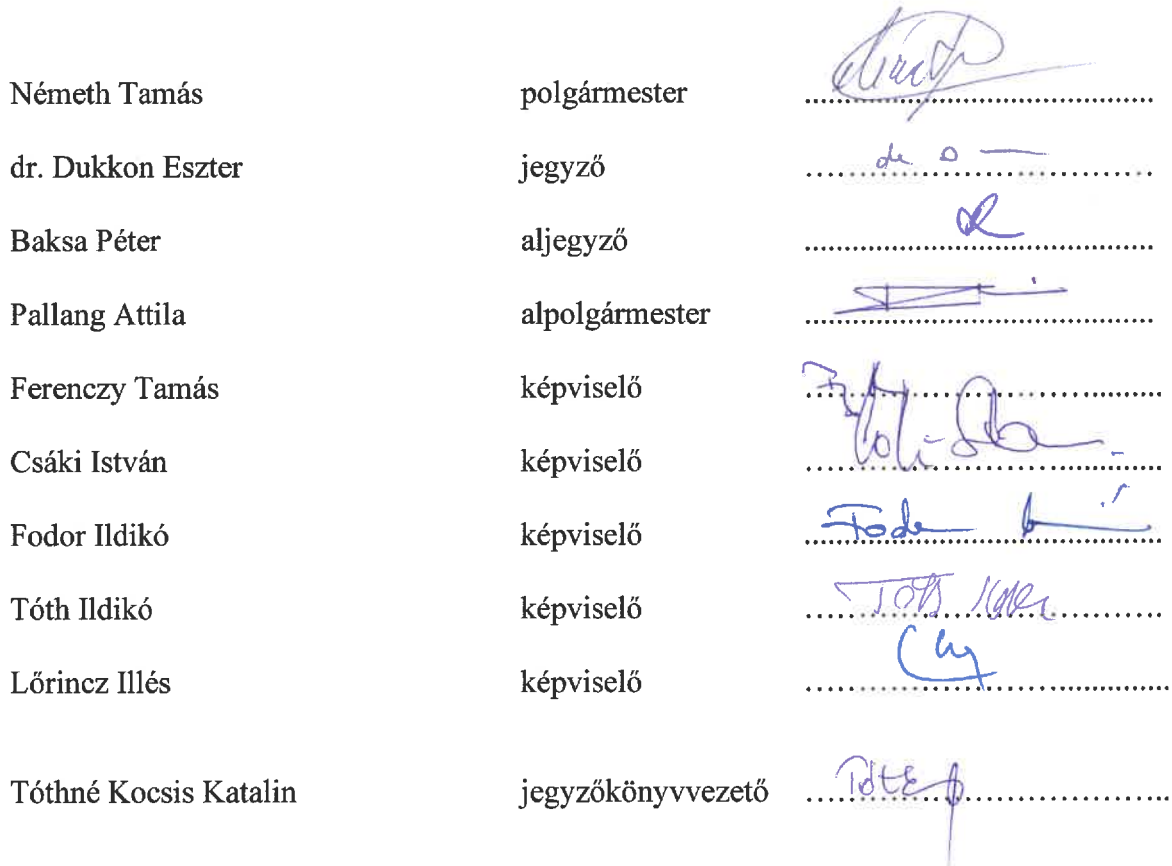 Németh Tamás polgármester
dr. Dukkon Eszter jegyző
Baksa Péter aljegyző
Pallang Attila alpolgármester
Ferenczy Tamás képviselő
Csáki István képviselő
Fodor Ildikó képviselő Fodor
Tóth Ildikó képviselő Tóth Ildikó
Lőrincz Illés képviselő
Tóthné Kocsis Katalin jegyzőkönyvvezető